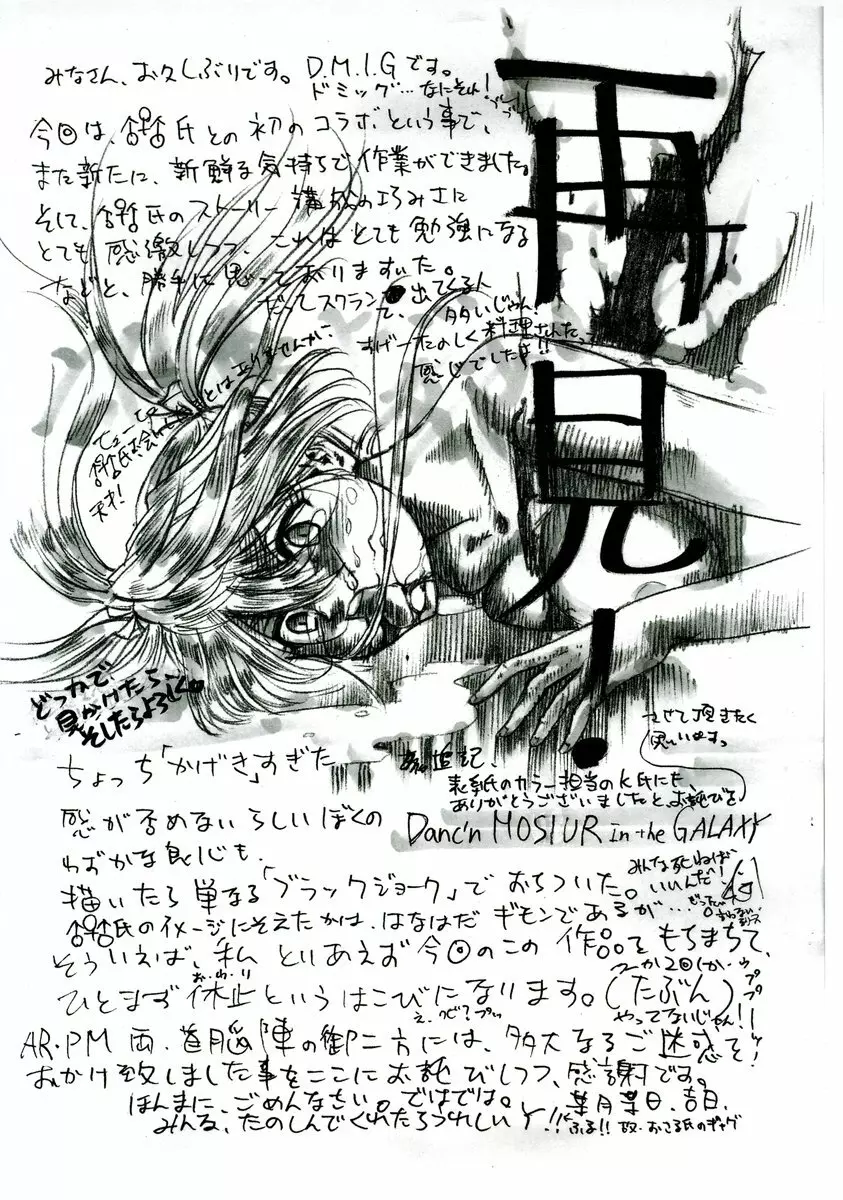 みなさん、お久しぶりです。D.M.I.Gです。
ドミッグ…なにそれ!
今回は、氏との初のコラボという事で、
また新たに、新鮮な気持ちで作業ができました。
そして、氏のストーリー構成の巧みさに
とても感激しつつ、これはとても勉強になる
などと、勝手に思っておりますいた。
だってスクラン 出てくる人
て、多いじゃん!
すげーたのしく料理されたっ
感じでしたよ!!
天才!
再見!
どっかで
見かけたら、
そしたらよろしく。
ちょっち「かげき」すぎた
感が否めないらしいぼくの
わずかな良心も、
追記、
表紙のカラー担当のK氏にも、
ありがとうございましたと、お詫びを
させて頂きたく
思いいます。
Danc'n MOSIUR in the GALAXY
描いたら単なる「ブラックジョーク」でおちついた。
みんな死ねば
いいんだ!
氏のイメージにそえたかは、はなはだギモンであるが…
そういえば、私 といあえず今回のこの作品をもちまちて、
ひとまず休止というはこびになります。(たぶん)
お・わ・り
つーか2回しか
やってないじゃん!!
AR・PM両・首脳陣の御二方には、多大なるご迷惑を
おかけ致しました事をここにお詫びしつつ、感謝です。
ほんまに、ごめんなさい。ではでは。
葉月葉日、吉日、
みんな、たのしんでくれたらうれしい!!